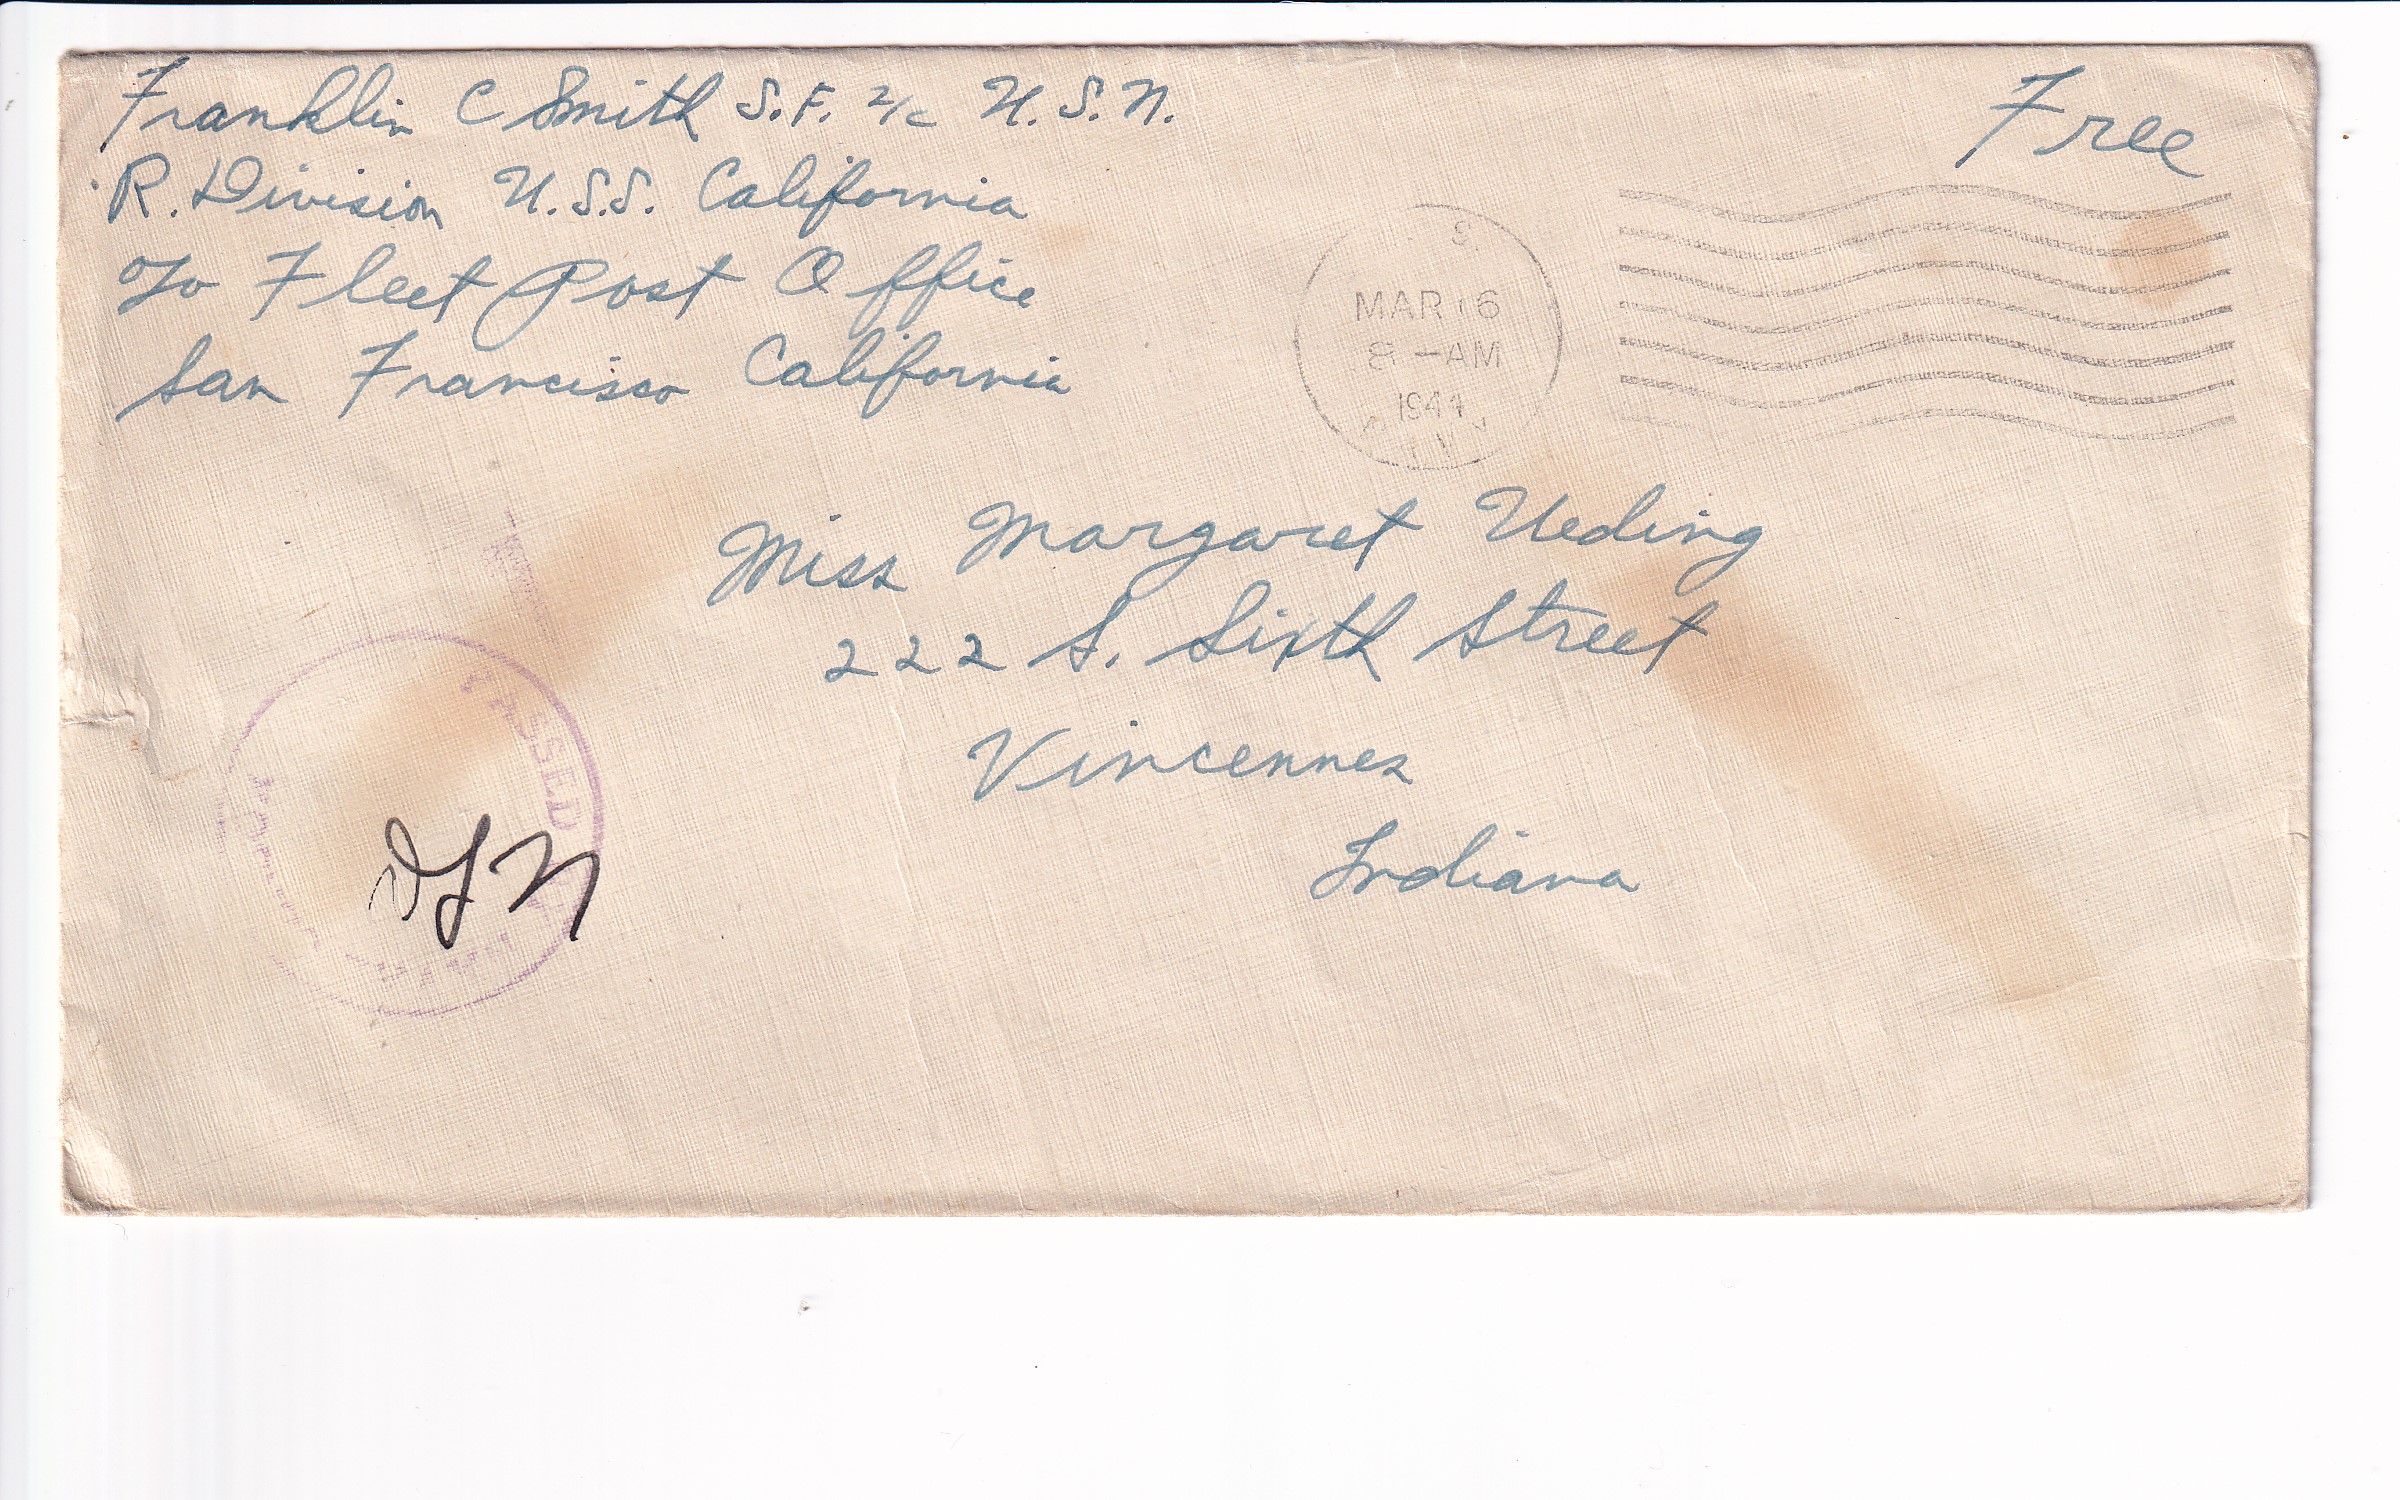 Franklin C Smith S.F. 2/c U.S.N.
R. Division U.S.S. California
℅ Fleet Post Office
San Francisco California
Free
S.
MAR 16
8 - AM
1944
Miss Margaret Ueding
222 S. Sixth Street
Vincennes
Indiana
PASSED
NAVAL